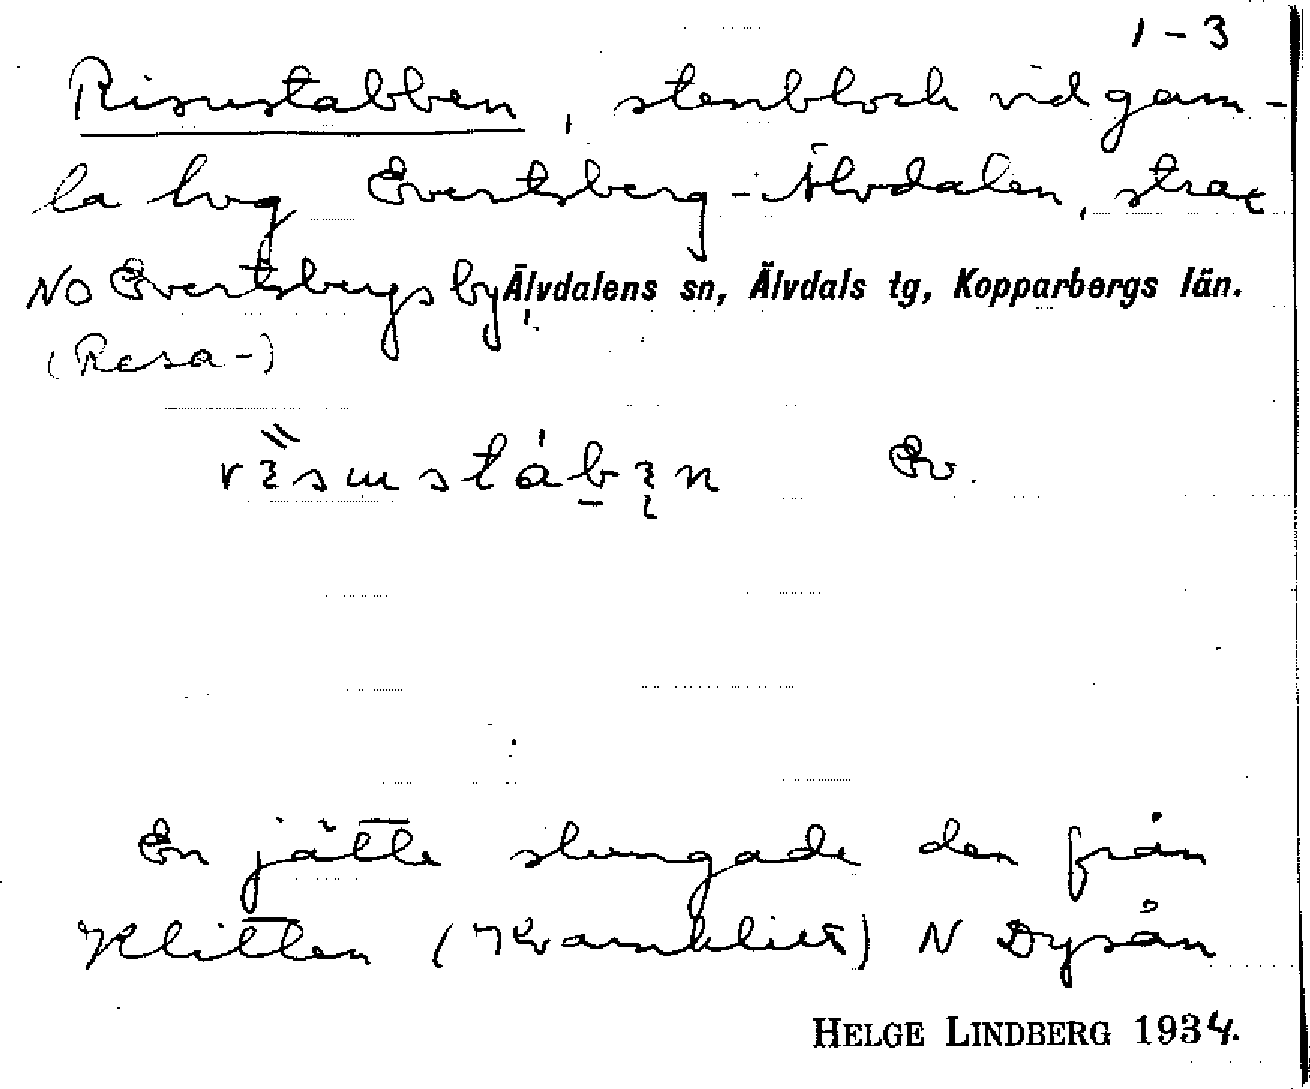 1-3
Risustabben, stenblock vid gam-
la lvg Evertsberg-Älvdalen, strax
NO Evertsbergs by Älvdalens sn, Älvdals tg, Kopparbergs län.
(Resa-)
Ev.
En jätte slungade den från
Klitten () N Dysån
HELGE LINDBERG 1934.